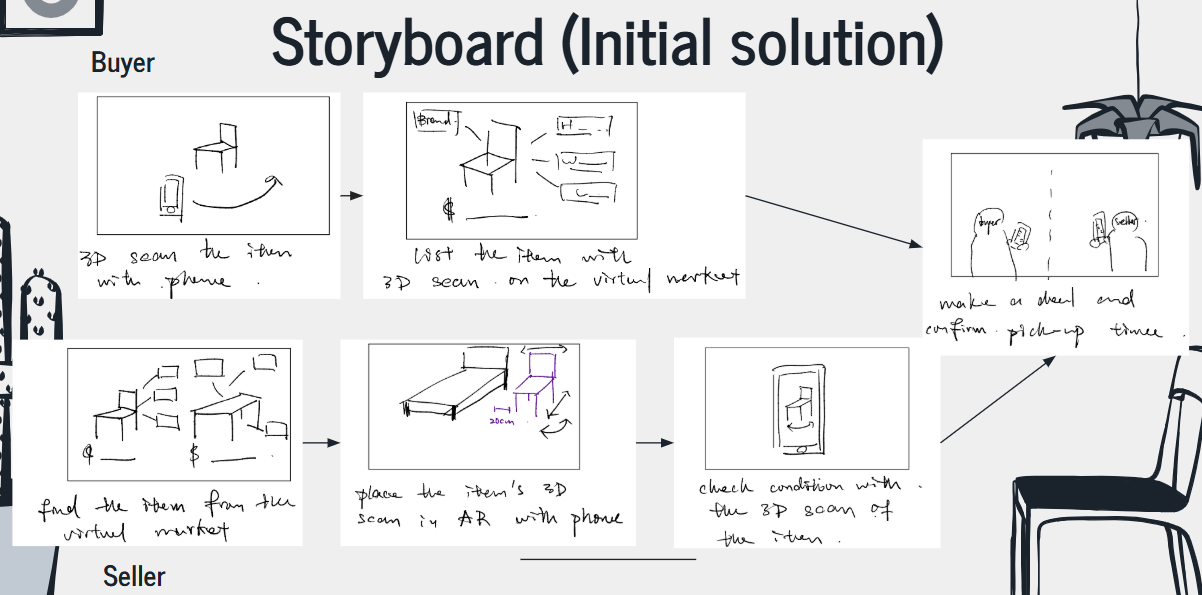 Storyboard (Initial solution)
Buyer
3D scan the item
with phone.
Brand.
H
W
L
$
List the item with
3D scan on the virtual market
buyer
seller
make a deal and
confirm pick-up time.
$
find the item from the
virtual market
20cm
place the item's 3D
scan in AR with phone
check condition with
the 3D scan of
the item.
Seller